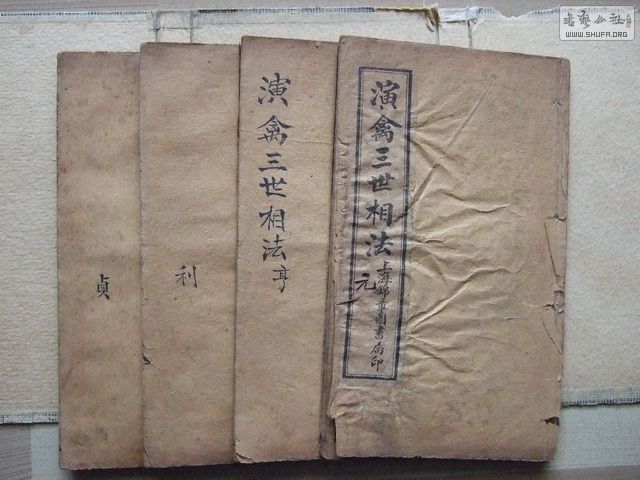 演禽三世相法
元
上海錦章圖書局印
演禽三世相法 亨
利
貞
書藝公社
WWW.SHUFA.ORG